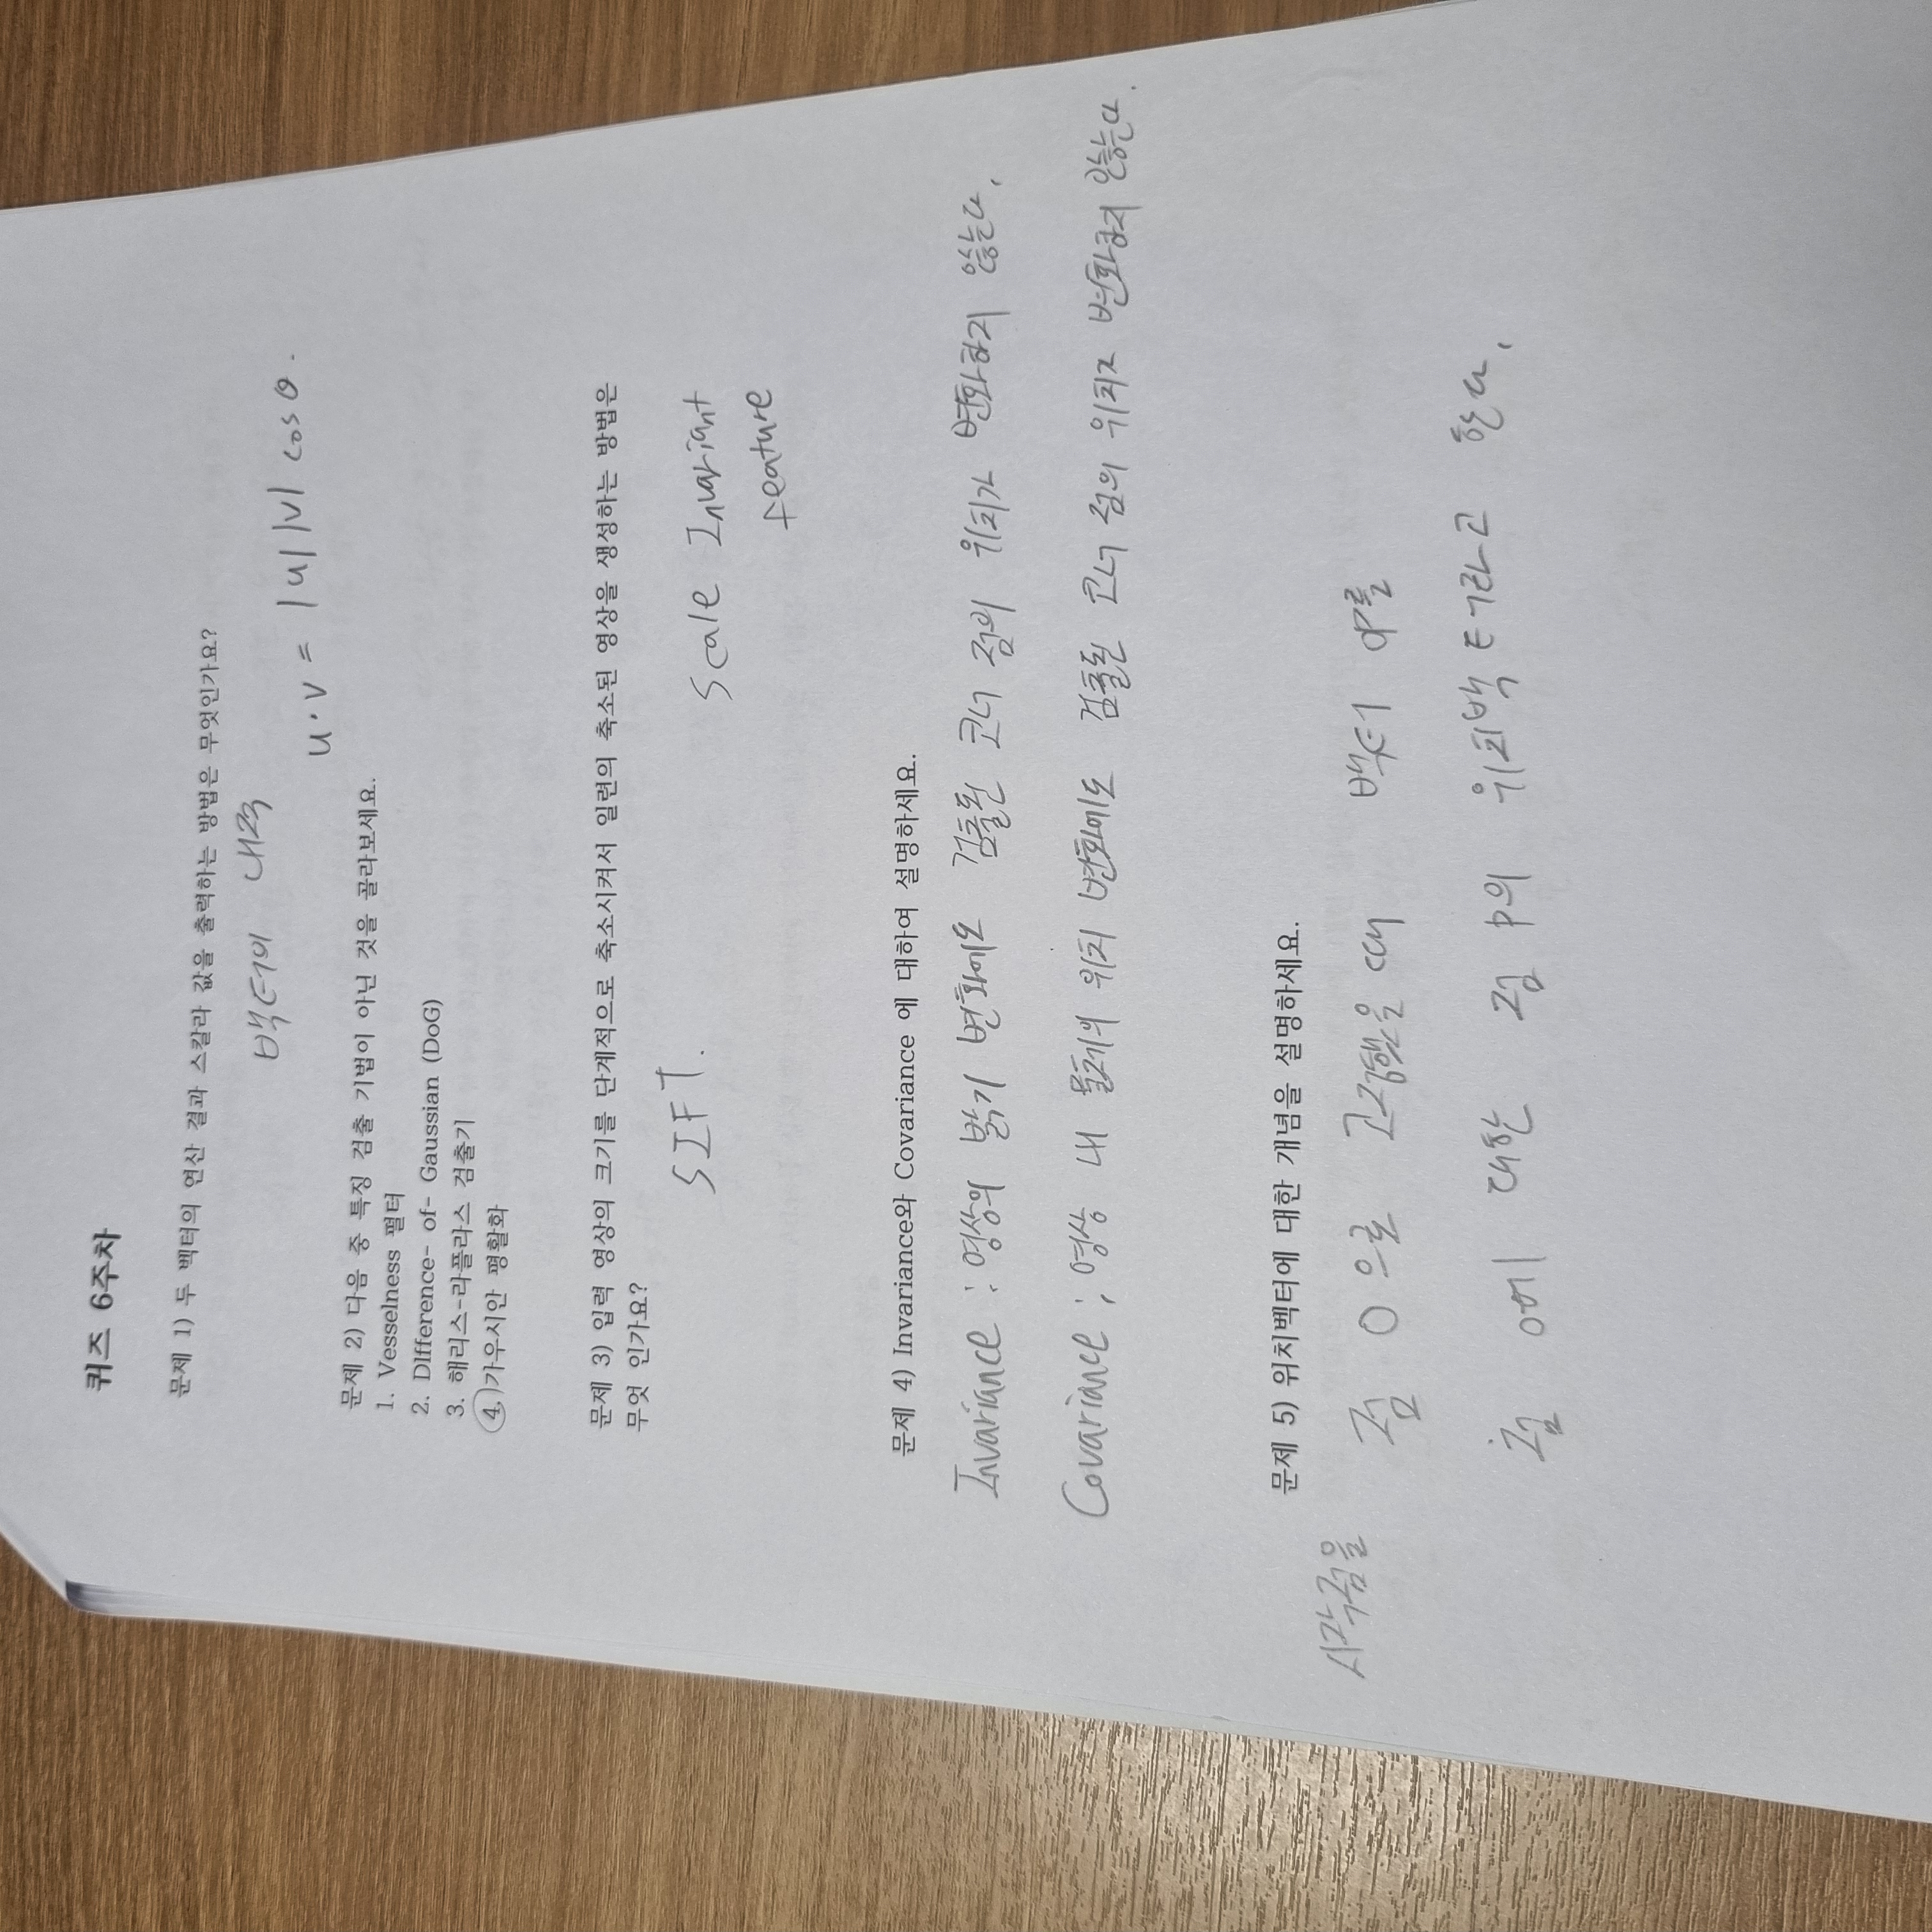 퀴즈 6주차
문제 1) 두 벡터의 연산 결과 스칼라 값을 출력하는 방법은 무엇인가요?
백터의 내적
u·v = |u||v| cosθ.
문제 2) 다음 중 특징 검출 기법이 아닌 것을 골라보세요.
1. Vesselness 펄터
2. DIfference- of- Gaussian (DoG)
3. 해리스-라플라스 검출기
4. 가우시안 평활화
문제 3) 입력 영상의 크기를 단계적으로 축소시켜서 일련의 축소된 영상을 생성하는 방법은
무엇 인가요?
SIFT.
Scale Invariant
feature
문제 4) Invariance와 Covariance 에 대하여 설명하세요.
Invariance : 영상의 밝기 변화에도 검출된 코너 점의 위치가 변화하지 않는다.
Covariance ; 영상 내 물체의 위치 변화에도 검출된 코너 점의 위치가 변화하지 않는다.
문제 5) 위치벡터에 대한 개념을 설명하세요.
시작점을 점 O으로 고정했을 때 백터 OP를
점 O에 대한 점 P의 위치백터라고 한다.